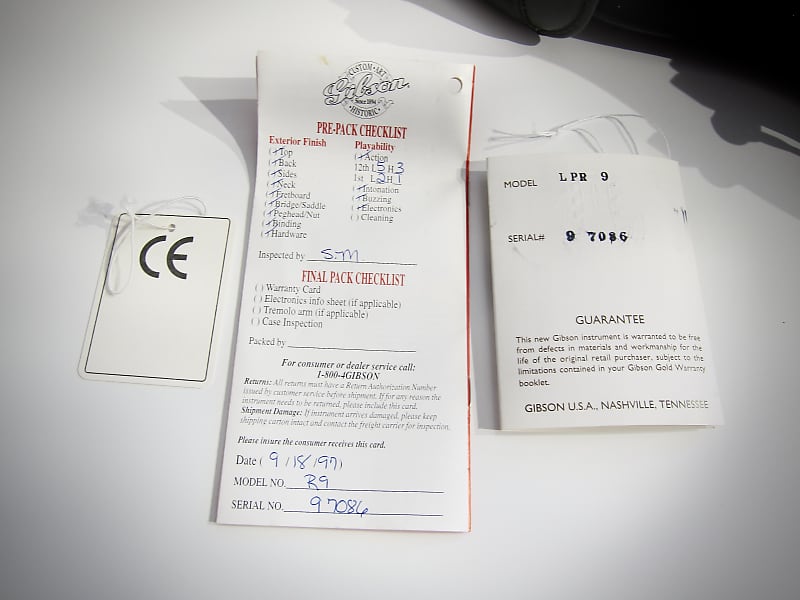 CE
CUSTOM • ART
Gibson
Since 1894
• HISTORIC •
PRE-PACK CHECKLIST
Exterior Finish
(✓) Top
(✓) Back
(✓) Sides
(✓) Neck
(✓) Fretboard
(✓) Bridge/Saddle
(✓) Peghead/Nut
(✓) Binding
(✓) Hardware
Playability
(✓) Action
12th L 5 H 3
1st L 2 H 1
(✓) Intonation
(✓) Buzzing
(✓) Electronics
( ) Cleaning
Inspected by S.M
FINAL PACK CHECKLIST
( ) Warranty Card
( ) Electronics info sheet (if applicable)
( ) Tremolo arm (if applicable)
( ) Case Inspection
Packed by
For consumer or dealer service call:
1-800-4GIBSON
Returns: All returns must have a Return Authorization Number
issued by customer service before shipment. If for any reason the
instrument needs to be returned, please include this card.
Shipment Damage: If instrument arrives damaged, please keep
shipping carton intact and contact the freight carrier for inspection.
Please insure the consumer receives this card.
Date ( 9 / 18 / 97 )
MODEL NO. R9
SERIAL NO. 97086
MODEL LPR 9
SERIAL# 9 7086
GUARANTEE
This new Gibson instrument is warranted to be free
from defects in materials and workmanship for the
life of the original retail purchaser, subject to the
limitations contained in your Gibson Gold Warranty
booklet.
GIBSON U.S.A., NASHVILLE, TENNESSEE